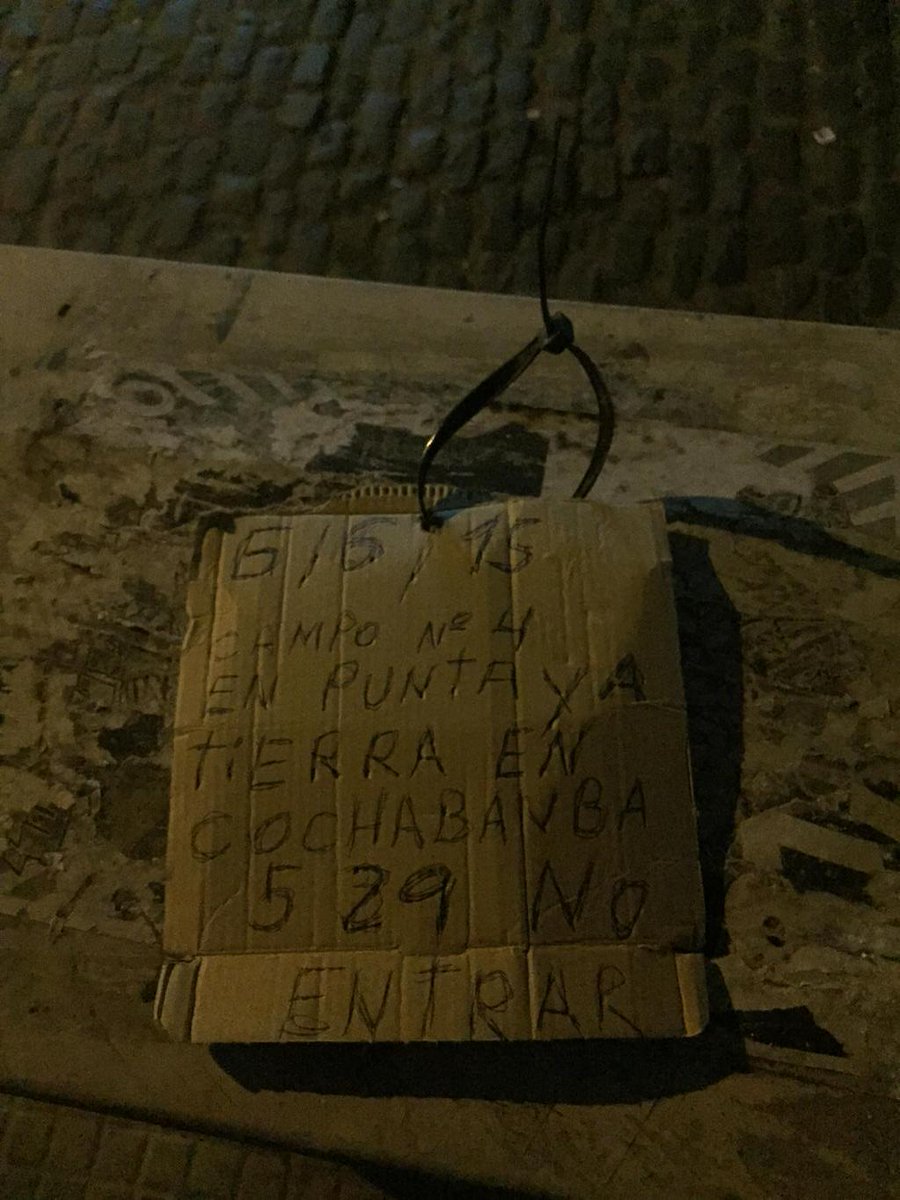 6/5/15
CAMPO Nº 4
EN PUNTA YA
TIERRA EN
COCHABAVBA
529 No
ENTRAR